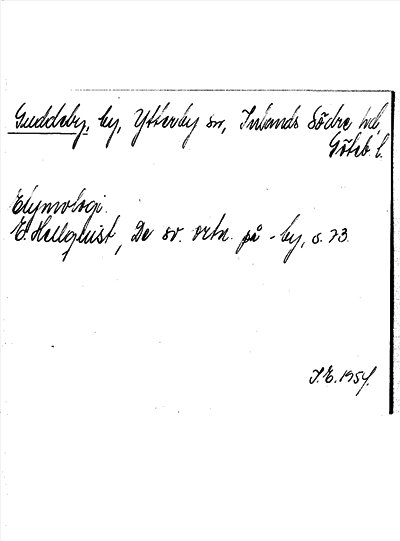 Guddeby, by, Ytterby sn, Inlands Södre hd,
Göteb. l.
Etymologi.
E. Hellquist, De sv. ortn. på -by, s. 73.
I.E. 1954.